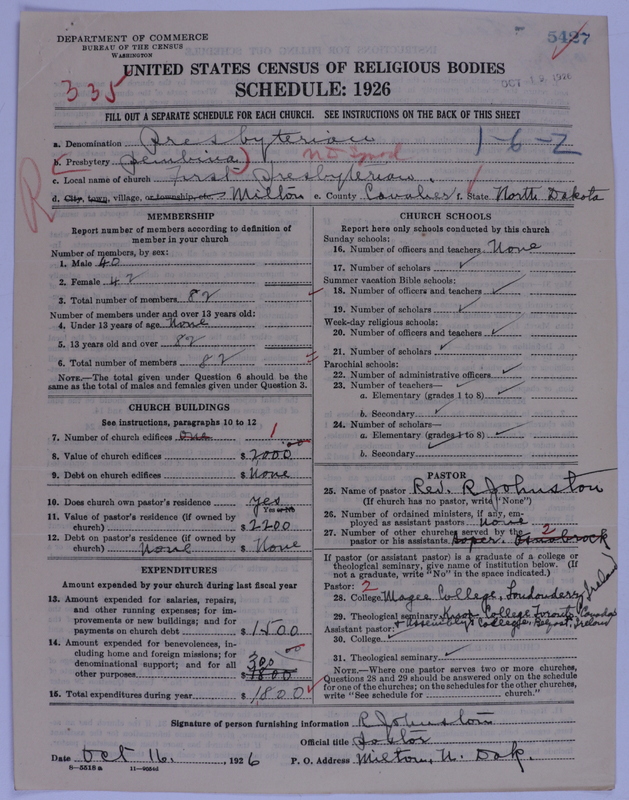 DEPARTMENT OF COMMERCE
BUREAU OF THE CENSUS
WASHINGTON
5427
335
UNITED STATES CENSUS OF RELIGIOUS BODIES
OCT 19 1926
SCHEDULE: 1926
FILL OUT A SEPARATE SCHEDULE FOR EACH CHURCH. SEE INSTRUCTIONS ON THE BACK OF THIS SHEET
a. Denomination Presbyterian 1-6-2
b. Presbytery (Pembina)
c. Local name of church First Presbyterian.
R
d. City, town, village, or township, etc. Milton e. County Cavalier f. State North Dakota
MEMBERSHIP
Report number of members according to definition of
member in your church
Number of members, by sex:
1. Male 40
2. Female 42
3. Total number of members 82
Number of members under and over 13 years old:
4. Under 13 years of age None
5. 13 years old and over 82
6. Total number of members 82
NOTE.—The total given under Question 6 should be the
same as the total of males and females given under Question 3.
CHURCH BUILDINGS
See instructions, paragraphs 10 to 12
7. Number of church edifices one 1
8. Value of church edifices $ 2000.00
9. Debt on church edifices $ None
10. Does church own pastor's residence yes
Yes or No
11. Value of pastor's residence (if owned by
church) $ 2200
12. Debt on pastor's residence (if owned by
church) None $ None
EXPENDITURES
Amount expended by your church during last fiscal year
13. Amount expended for salaries, repairs,
and other running expenses; for im-
provements or new buildings; and for
payments on church debt $ 1500
14. Amount expended for benevolences, in-
cluding home and foreign missions; for
denominational support; and for all
other purposes 300.00 $ 1800
15. Total expenditures during year $ 1800
CHURCH SCHOOLS
Report here only schools conducted by this church
Sunday schools:
16. Number of officers and teachers None
17. Number of scholars
Summer vacation Bible schools:
18. Number of officers and teachers
19. Number of scholars
Week-day religious schools:
20. Number of officers and teachers
21. Number of scholars
Parochial schools:
22. Number of administrative officers
23. Number of teachers—
a. Elementary (grades 1 to 8)
b. Secondary
24. Number of scholars—
a. Elementary (grades 1 to 8)
b. Secondary
PASTOR
25. Name of pastor Rev. R Johnston
(If church has no pastor, write "None")
26. Number of ordained ministers, if any, em-
ployed as assistant pastors None
27. Number of other churches served by the 2
pastor or his assistants Osnabrock
If pastor (or assistant pastor) is a graduate of a college or
theological seminary, give name of institution below. (If
not a graduate, write "No" in the space indicated.)
Pastor: 2
28. College Magee College, Londonderry Ireland
29. Theological seminary Knox College Toronto Canada
Assistant pastor: + Assembly's College, Belfast, Ireland
30. College
31. Theological seminary
NOTE.—Where one pastor serves two or more churches,
Questions 28 and 29 should be answered only on the schedule
for one of the churches; on the schedules for the other churches,
write "See schedule for church."
Signature of person furnishing information R Johnston
Official title Pastor
Date Oct 16. , 1926 P. O. Address Milton, N. Dak.
8—5518 a